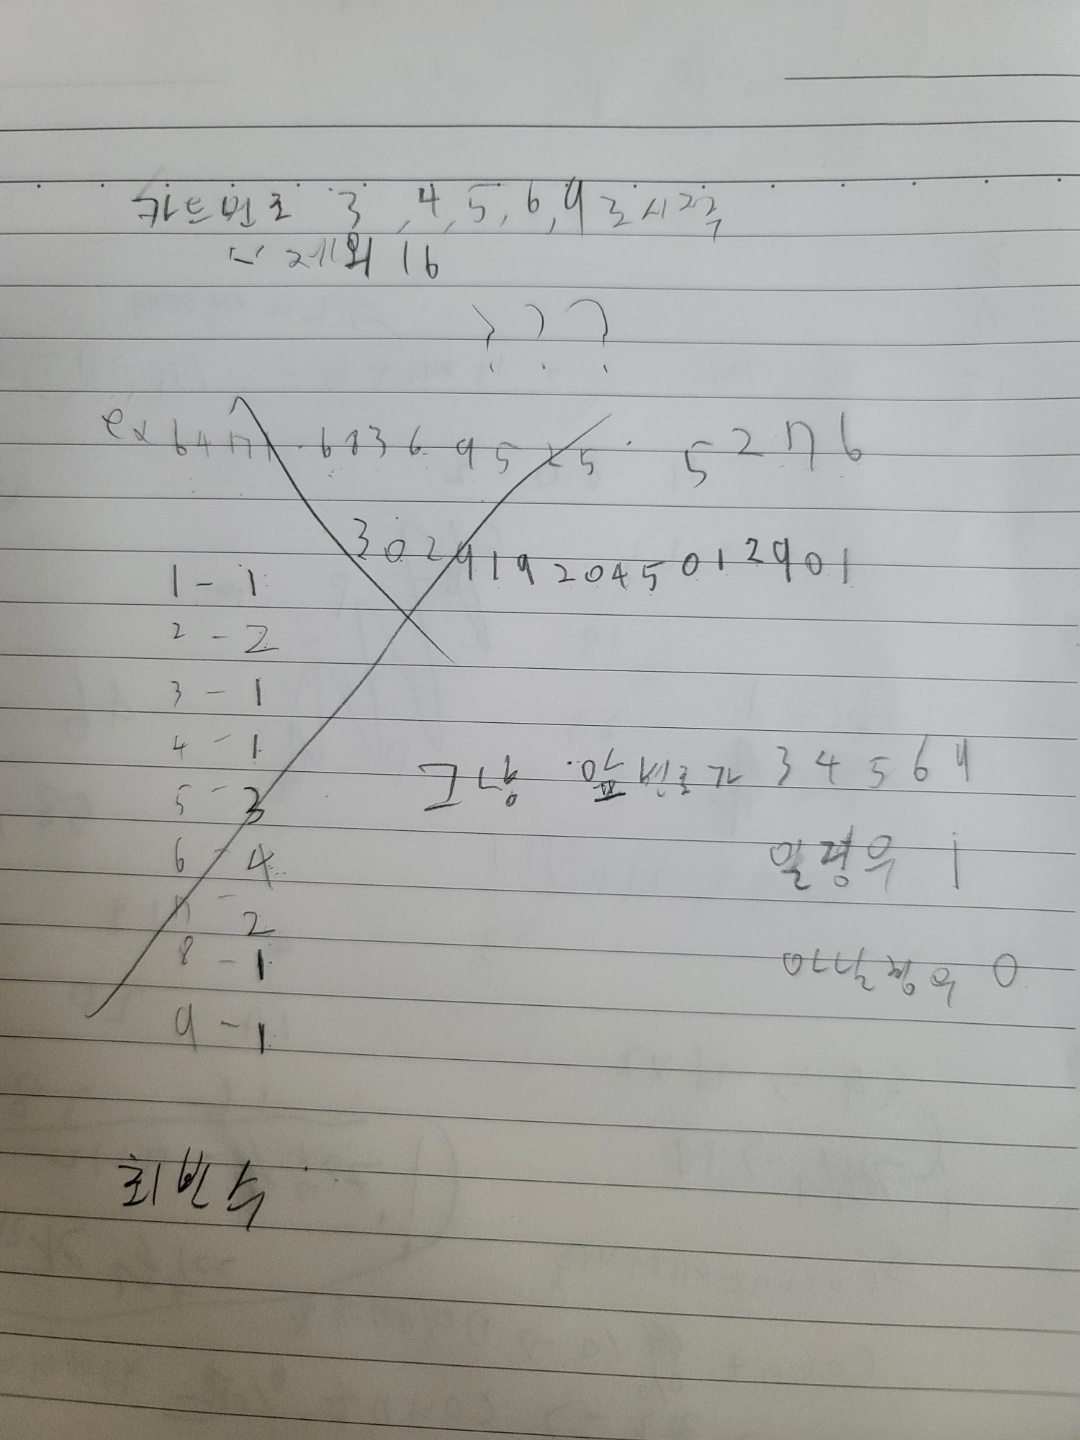 카드번호 3, 4, 5, 6, 9로 시작
제외 16
???
ex 6471 6836 9525 5276
3029192045012901
1 - 1
2 - 2
3 - 1
4 - 1
5 - 3
6 - 4
7 - 2
8 - 1
9 - 1
그냥 앞번호가 3 4 5 6 9
일경우 1
아닐경우 0
최빈수